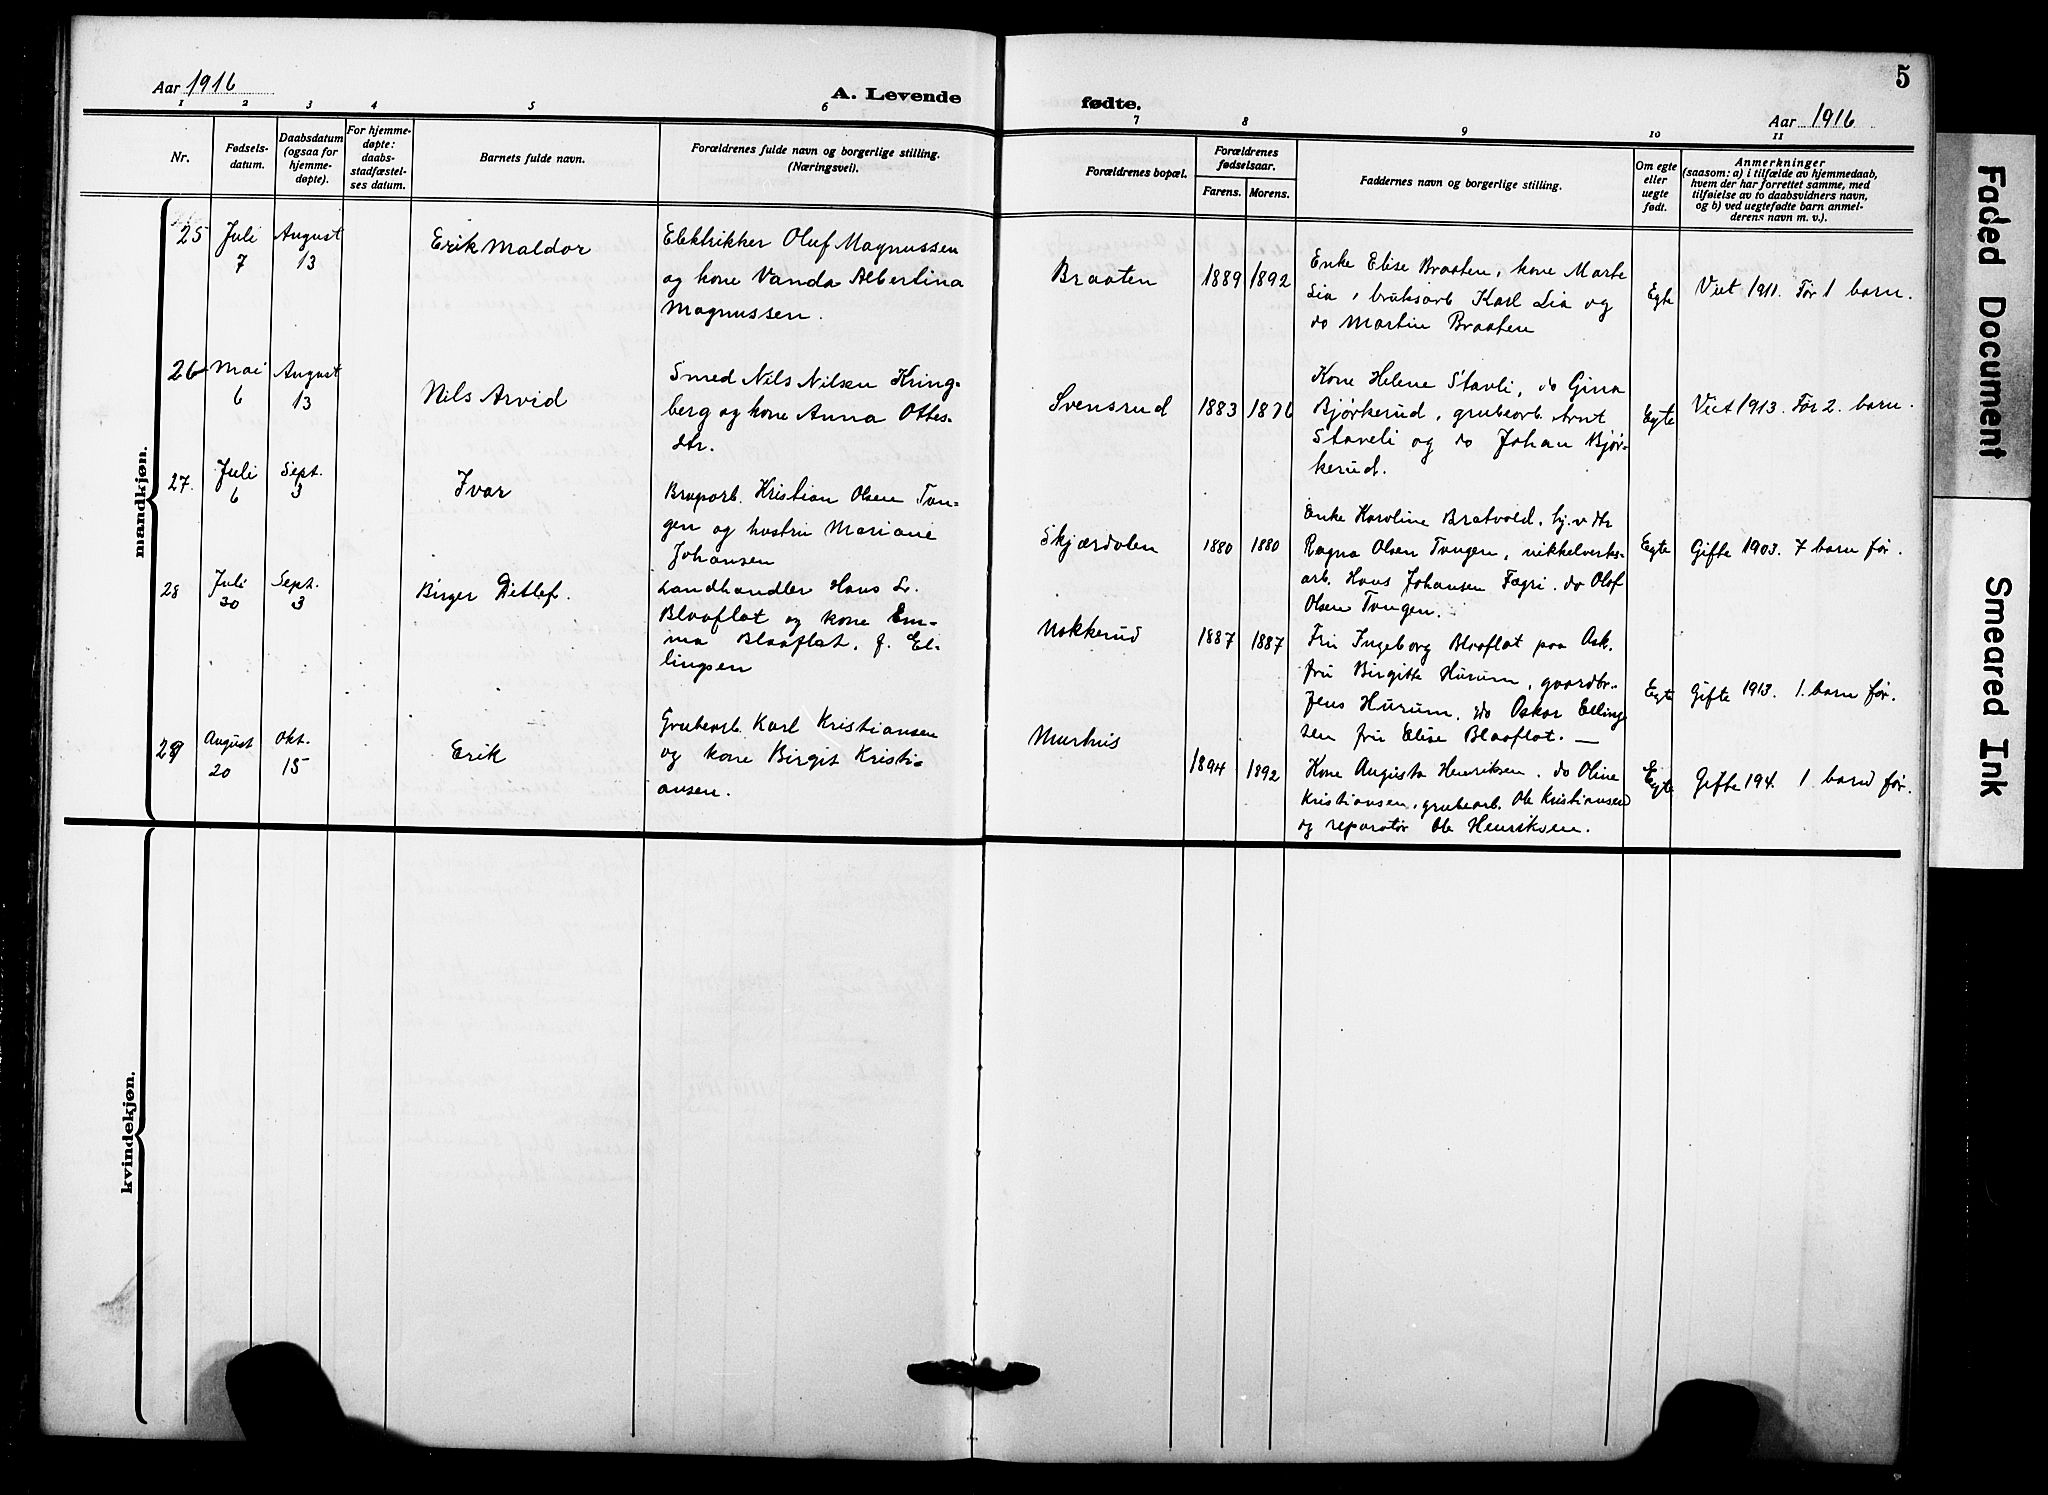 5
Aar 1916
A. Levende
fødte.
Aar 1916
1 2 3 4 5 6 7 8 9 10 11
Nr.
Fødsels-
datum.
Daabsdatum
(ogsaa for
hjemme-
døpte).
For hjemme-
døpte:
daabs-
stadfæstel-
ses datum.
Barnets fulde navn.
Forældrenes fulde navn og borgerlige stilling.
(Næringsvei).
Forældrenes bopæl.
Forældrenes
fødselsaar.
Farens. Morens.
Faddernes navn og borgerlige stilling.
Om egte
eller
uegte
født.
Anmerkninger
(saasom: a) i tilfælde av hjemmedaab,
hvem der har forrettet samme, med
tilføielse av to daabsvidners navn,
og b) ved uegtefødte barn anmel-
derens navn m. v.).
mandkjøn.
25
Juli
7
August
13
Erik Maldor
Elektrikker Oluf Magnussen
og kone Vanda Albertina
Magnussen.
Braaten
1889
1892
Enke Elise Braaten, kone Marte
Lia, bruksarb Karl Lia og
do Martin Braaten
Egte
Viet 1911. Før 1 barn.
26
Mai
6
August
13
Nils Arvid
Smed Nils Nilsen Kring-
berg og kone Anna Ottes-
dtr.
Svensrud
1883
1876
Kone Helene Stavli, do Gina
Bjørkerud, grubearb. Arnt
Staveli og do Johan Bjør-
kerud.
Egte
Viet 1913. Før 2. barn.
27.
Juli
6
Sept.
3
Ivar
Bruparb. Kristian Olsen Tan-
gen og hustru Mariane
Johansen
Skjærdalen
1880
1880
Enke Karoline Bratvold, hj.v. dtr
Ragna Olsen Tangen, nikkelverks-
arb. Hans Johansen Fagri. do Olof
Olsen Tangen.
Egte
Gifte 1903. 7 barn før.
28
Juli
30
Sept.
3
Birger Ditlef.
Landhandler Hans L.
Blaaflat og kone Em-
ma Blaaflat, f. El-
lingsen
Nakkerud
1887
1887
Fru Ingeborg Blaaflat paa Ask.
fru Birgitte Hurum, gaardbr.
Jens Hurum, do Oskar Elling
sen fru Elise Blaaflat. —
Egte
Gifte 1913. 1. barn før.
29
August
20
Okt.
15
Erik
Grubearb. Karl Kristiansen
og kone Birgit Kristi-
ansen.
Murhus
1894
1892
Kone Augusta Henriksen, do Oline
Kristiansen, grubearb. Ole Kristiansen
og reparatør Ole Henriksen.
Egte
Gifte 194. 1 barn før.
kvindekjøn.
Faded Document
Smeared Ink